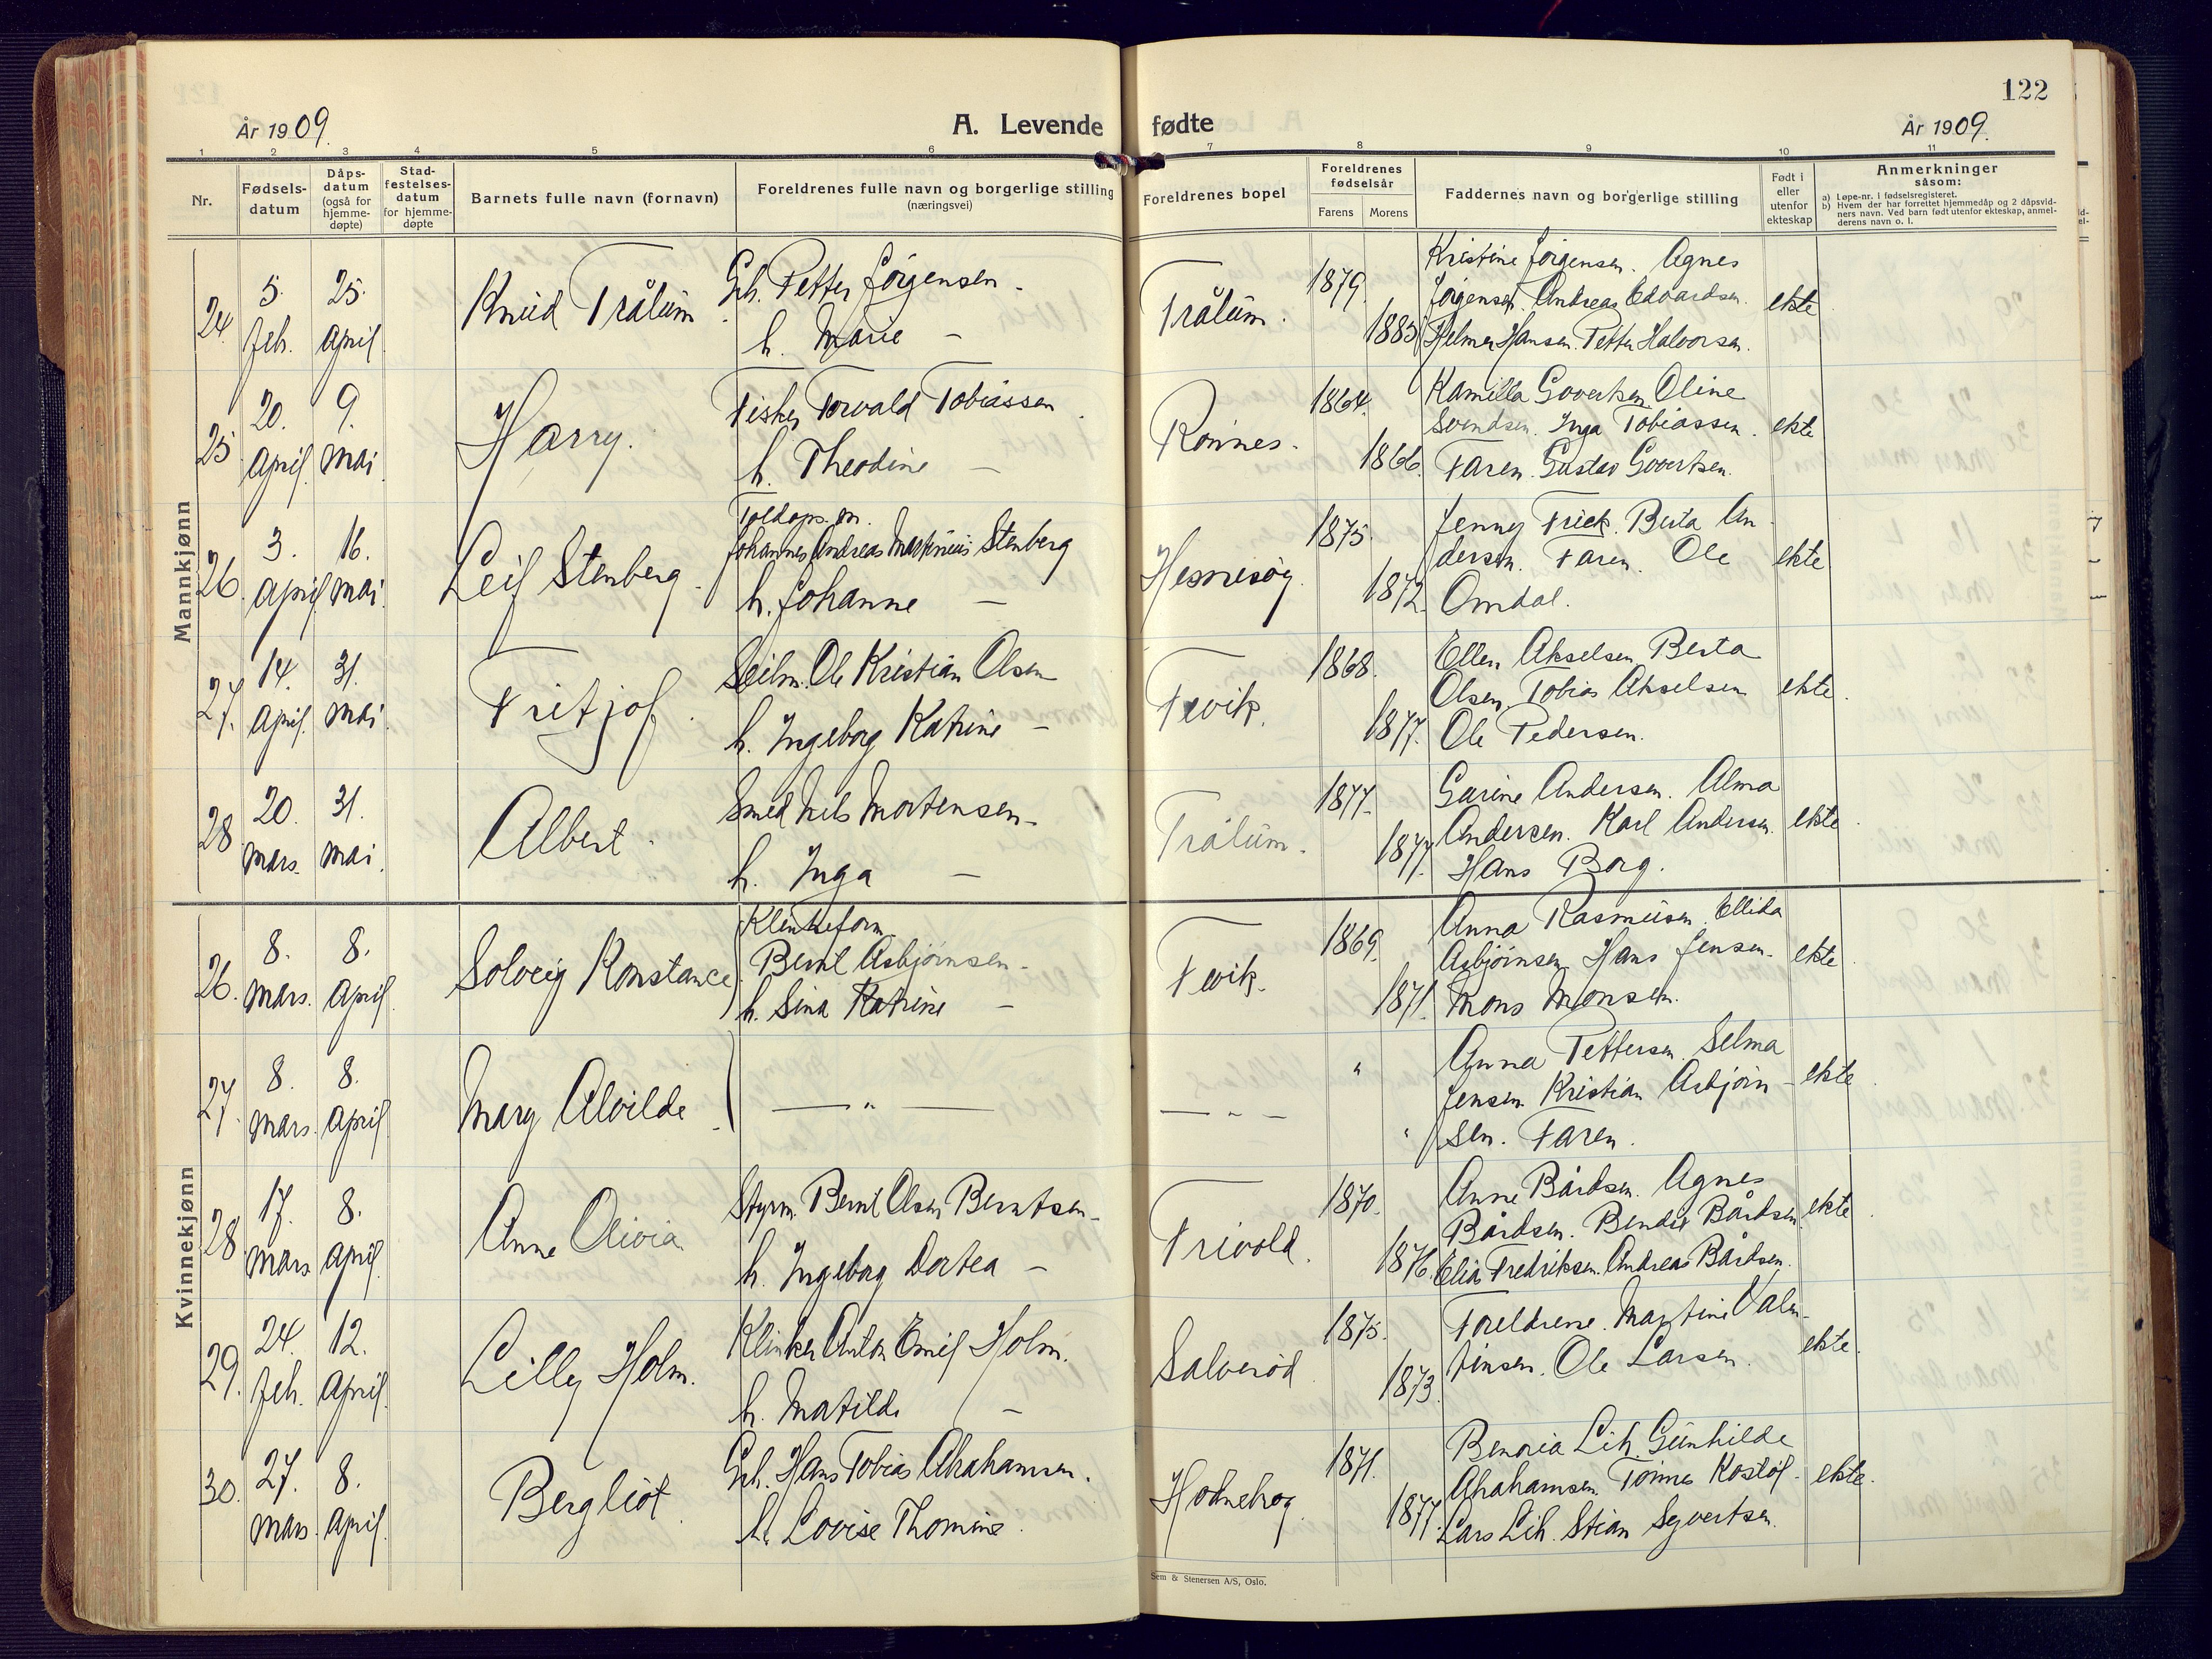 122
År 1909.
A. Levende fødte
År 1909.
1 2 3 4 5 6 7 8 9 10 11
Nr.
Fødsels-
datum
Dåps-
datum
(også for
hjemme-
døpte)
Stad-
festelses-
datum
for hjemme-
døpte
Barnets fulle navn (fornavn)
Foreldrenes fulle navn og borgerlige stilling
(næringsvei)
Foreldrenes bopel
Foreldrenes
fødselsår
Farens Morens
Faddernes navn og borgerlige stilling
Født i
eller
utenfor
ekteskap
Anmerkninger
såsom:
a) Løpe-nr. i fødselsregisteret.
b) Hvem der har forrettet hjemmedåp og 2 dåpsvid-
ners navn. Ved barn født utenfor ekteskap, anmel-
derens navn o. l.
Mannkjønn
24.
5.
Feb.
25.
April
Knud Trålum
Gh. Petter Jørgensen -
h. Marie -
Trålum.
1879.
1885
Kristine Jørgensen. Agnes
Jørgensen. Andreas Edvardsen.
Helmer Hansen. Petter Halvorsen.
ekte
25
20.
April.
9.
Mai
Harry.
Fisker Torvald Tobiassen
h. Theodine -
Rønnes.
1864.
1866.
Kamilla Govertsen Oline
Svendsen. Inga Tobiassen.
Faren. Gustav Govertsen.
ekte
26.
3.
April
16.
Mai.
Leif Stenberg.
Toldops.m.
Johannes Andreas Martinius Stenberg
h. Johanne -
Hesnesøy.
1875.
1872.
Jenny Frick. Berta An-
dersen. Faren. Ole
Omdal.
ekte
27.
14.
April.
31.
Mai.
Fritjof.
Seilm. Ole Kristian Olsen
h. Ingeborg Katrine -
Fevik.
1868.
1877.
Ellen Akselsen Berta
Olsen. Tobias Akselsen
Ole Pedersen.
ekte.
28
20.
Mars.
31.
Mai.
Albert.
Smed Nels Mortensen -
h. Inga -
Trålum.
1877.
1877.
Garine Andersen. Alma
Andersen. Karl Andersen.
Hans Borg.
ekte.
Kvinnekjønn
26.
8.
Mars.
8.
April
Solveig Konstance
Klinkeform.
Bernt Asbjørnsen -
h. Sina Katrine -
Fevik.
1869.
1871.
Anna Rasmusen. Ellida
Asbjørnsen. Hans Jensen.
Mons Monsen.
ekte.
27.
8.
Mars.
8.
April
Mary Alvilde.
— " —
— " —
"
"
Anna Pettersen. Selma
Jensen. Kristian Asbjørn-
sen. Faren.
ekte.
28
17.
Mars
8.
April.
Anne Olivia.
Styrm. Bernt Olsen Berntsen -
h. Ingeborg Dortea -
Frivold.
1870.
1876.
Anne Bårdsen. Agnes
Bårdsen. Bendix Bårdsen.
Elias Fredriksen. Andreas Bårdsen.
ekte.
29.
24.
Feb.
12.
April.
Lilly Holm.
Klinker Anton Emil Holm.
h. Matilde -
Salverød
1875.
1873.
Foreldrene. Martine Valen-
tinsen. Ole Larsen.
ekte.
30.
27.
Mars.
8.
April.
Bergliot.
Gh. Hans Tobias Abrahamsen.
h. Lovise Thomine.
Hodnebrog.
1871.
1877.
Benaia Lih. Gunhilde
Abrahamsen. Tønnes Kostøl.
Lars Lih. Stian Syvertsen.
ekte.
Sem & Stenersen A/S, Oslo.